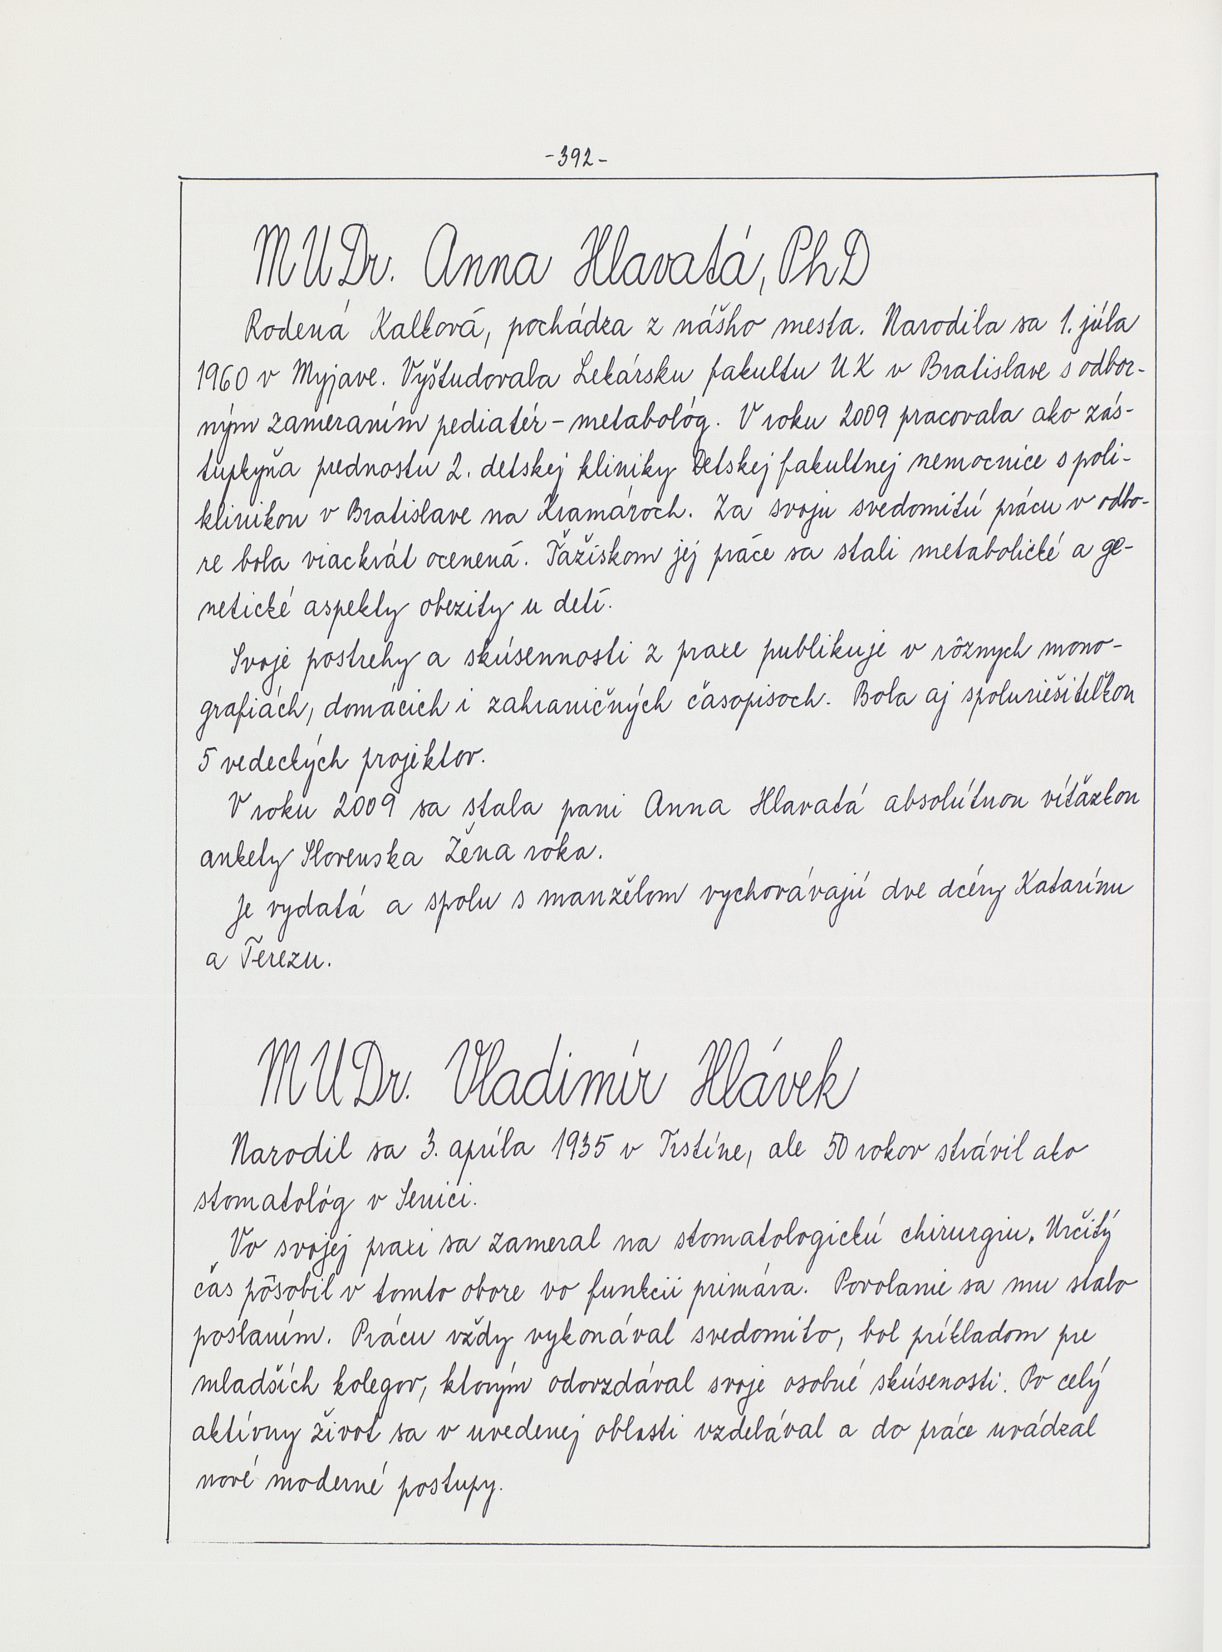 -392-
MUDr. Anna Hlavatá, PhD
Rodená Kalková, pochádza z nášho mesta. Narodila sa 1. júla
1960 v Myjave. Vyštudovala Lekársku fakultu UK v Bratislave s odbor-
ným zameraním pediatér - metabológ. V roku 2009 pracovala ako zás-
tupkyňa prednostu 2. detskej kliniky Detskej fakultnej nemocnice s poli-
klinikou v Bratislave na Kramároch. Za svoju svedomitú prácu v odbo-
re bola viackrát ocenená. Ťažiskom jej práce sa stali metabolické a ge-
netické aspekty obezity u detí.
Svoje postrehy a skúsennosti z praxe publikuje v rôznych mono-
grafiách, domácich i zahraničných časopisoch. Bola aj spoluriešiteľkou
5 vedeckých projektov.
V roku 2009 sa stala pani Anna Hlavatá absolútnou víťazkou
ankety Slovenska Žena roka.
Je vydatá a spolu s manželom vychovávajú dve dcéry Katarínu
a Terezu.
MUDr. Vladimír Hlávek
Narodil sa 3. apríla 1935 v Trstíne, ale 50 rokov strávil ako
stomatológ v Senici.
Vo svojej praxi sa zameral na stomatologickú chirurgiu. Určitý
čas pôsobil v tomto obore vo funkcii primára. Povolanie sa mu stalo
poslaním. Prácu vždy vykonával svedomito, bol príkladom pre
mladších kolegov, ktorým odovzdával svoje osobné skúsenosti. Po celý
aktívny život sa v uvedenej oblasti vzdelával a do práce uvádzal
nové moderné postupy.